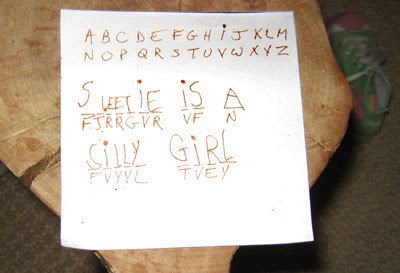 A B C D E F G H i J K L M
N O P Q R S T U V W X Y Z
SWEETiE iS A
FJRRGVR VF N
SiLLY GiRL
FVYYL TVEY